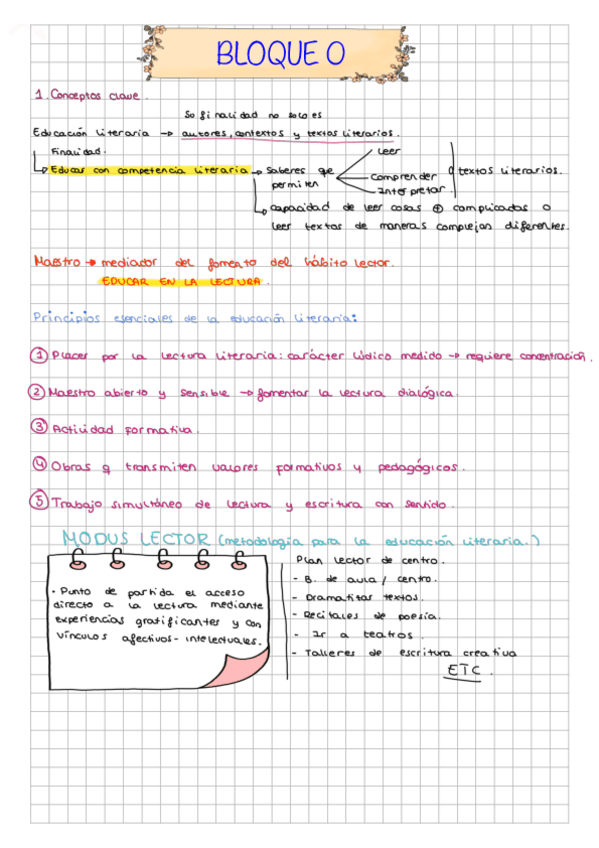 BLOQUE 0
1. Conceptos clave.
Su finalidad no solo es
Educación literaria → autores, contextos y textos literarios.
Finalidad.
Educar con competencia literaria → Saberes que permiten
Leer
Comprender
Interpretar
textos literarios.
Capacidad de leer cosas ⊕ complicadas o
leer textos de maneras complejas diferentes.
Maestro → mediador del fomento del hábito lector.
EDUCAR EN LA LECTURA.
Principios esenciales de la educación literaria:
① Placer por la lectura literaria: carácter lúdico medido → requiere concentración.
② Maestro abierto y sensible → fomentar la lectura dialógica.
③ Actividad formativa.
④ Obras q transmiten valores formativos y pedagógicos.
⑤ Trabajo simultáneo de lectura y escritura con sentido.
MODUS LECTOR (metodología para la educación literaria.)
· Punto de partida el acceso
directo a la lectura mediante
experiencias gratificantes y con
vínculos afectivos-intelectuales.
Plan lector de centro.
- B. de aula / centro.
- Dramatizar textos.
- Recitales de poesía.
- Ir a teatros.
- Talleres de escritura creativa
ETC.